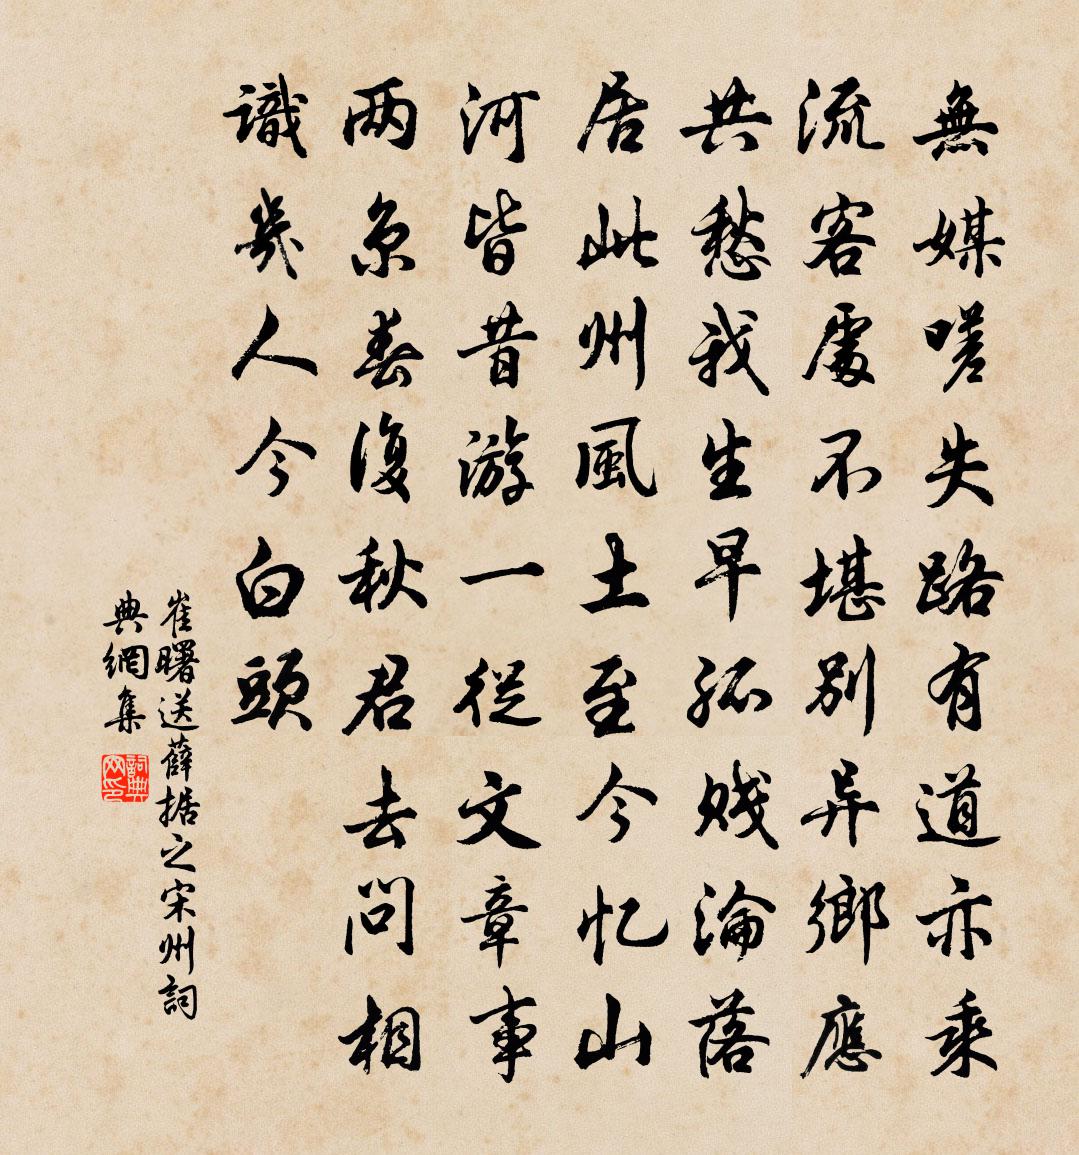 無媒嗟失路有道亦乘
流客處不堪別异鄉應
共愁我生早孤賤淪落
居此州風土至今忆山
河皆昔游一從文章事
两京春復秋君去問相
識幾人今白頭
崔曙送薛据之宋州詞
典網集
詞典网印